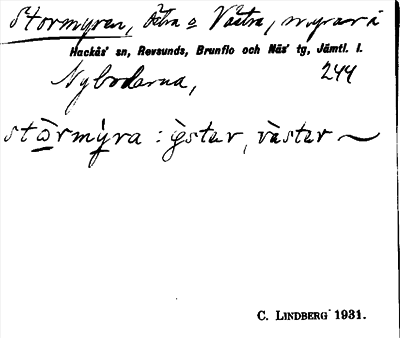 Stormyren, Östra o Västra, myrar å
Hackås' sn, Revsunds, Brunflo och Näs' tg, Jämtl. l.
Nybodarna, 244
stòrmỳra : ø̀star, vàstar ~
C. LINDBERG 1931.